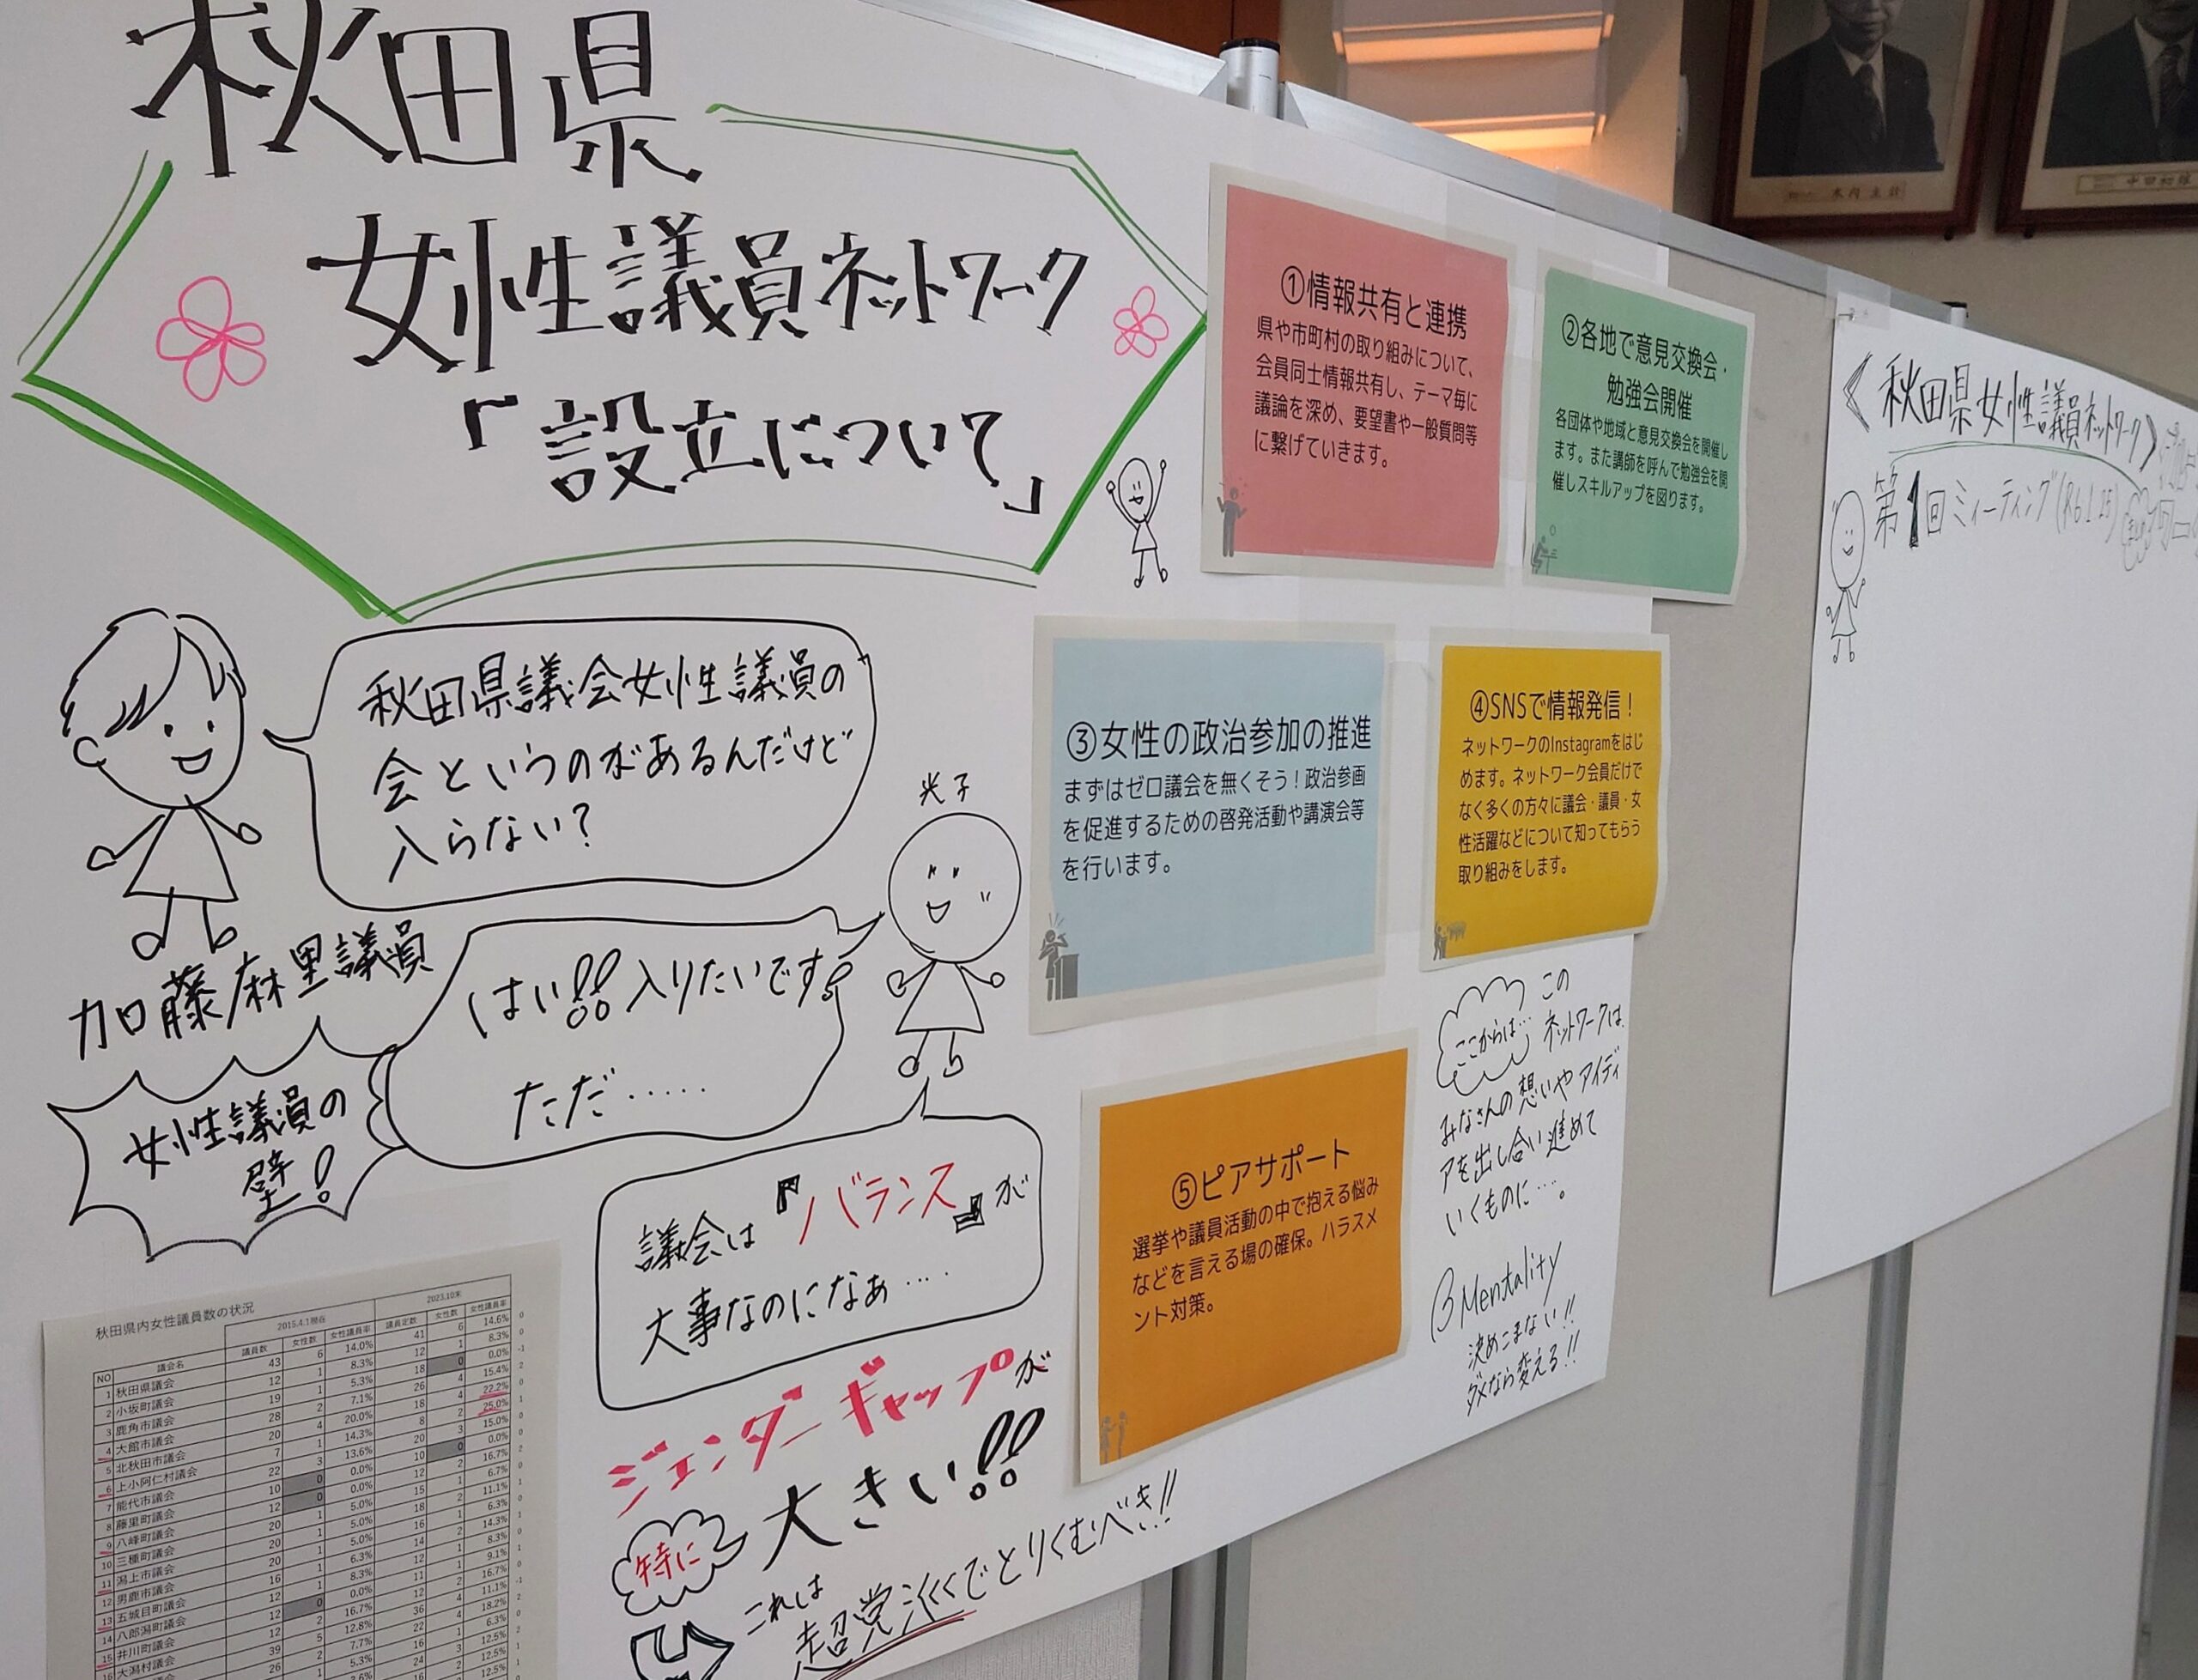 秋田県
女性議員ネットワーク
「設立について」
秋田県議会女性議員の
会というのがあるんだけど
入らない?
加藤麻里議員
光子
はい!! 入りたいです。
ただ……
女性議員の
壁!
議会は『バランス』が
大事なのになぁ….
ジェンダーギャップが
特に
大きい!!
これは
超党派でとりくむべき!!
①情報共有と連携
県や市町村の取り組みについて、
会員同士情報共有し、テーマ毎に
議論を深め、要望書や一般質問等
に繋げていきます。
②各地で意見交換会・
勉強会開催
各団体や地域と意見交換会を開催し
ます。また講師を呼んで勉強会を開
催しスキルアップを図ります。
③女性の政治参加の推進
まずはゼロ議会を無くそう!政治参画
を促進するための啓発活動や講演会等
を行います。
④SNSで情報発信!
ネットワークのInstagramをはじ
めます。ネットワーク会員だけで
なく多くの方々に議会・議員・女
性活躍などについて知ってもらう
取り組みをします。
⑤ピアサポート
選挙や議員活動の中で抱える悩み
などを言える場の確保。ハラスメ
ント対策。
ここからは…
この
ネットワークは、
みなさんの想いやアイディ
アを出し合い進めて
いくものに…。
βMentality
決めこまない!!
ダメなら変える!!
《秋田県女性議員ネットワーク》
第1回ミーティング(R6.1.25)
秋田県内女性議員数の状況
2015.4.1現在
2023.10末
NO 議会名 議員数 女性数 女性議員率 議員定数 女性数 女性議員率
1 秋田県議会 43 6 14.0% 41 6 14.6%
2 小坂町議会 12 1 8.3% 12 1 8.3%
3 鹿角市議会 19 1 5.3% 18 0 0.0%
4 大館市議会 28 2 7.1% 26 4 15.4%
5 北秋田市議会 20 4 20.0% 18 4 22.2%
6 上小阿仁村議会 7 1 14.3% 8 2 25.0%
7 能代市議会 22 3 13.6% 20 3 15.0%
8 藤里町議会 10 0 0.0% 10 0 0.0%
9 八峰町議会 12 0 0.0% 12 2 16.7%
10 三種町議会 20 1 5.0% 15 1 6.7%
11 潟上市議会 20 1 5.0% 18 2 11.1%
12 男鹿市議会 20 1 5.0% 16 1 6.3%
13 五城目町議会 16 1 6.3% 14 2 14.3%
14 八郎潟町議会 12 1 8.3% 12 1 8.3%
15 井川町議会 12 0 0.0% 11 1 9.1%
大潟村議会 12 2 16.7% 12 2 16.7%